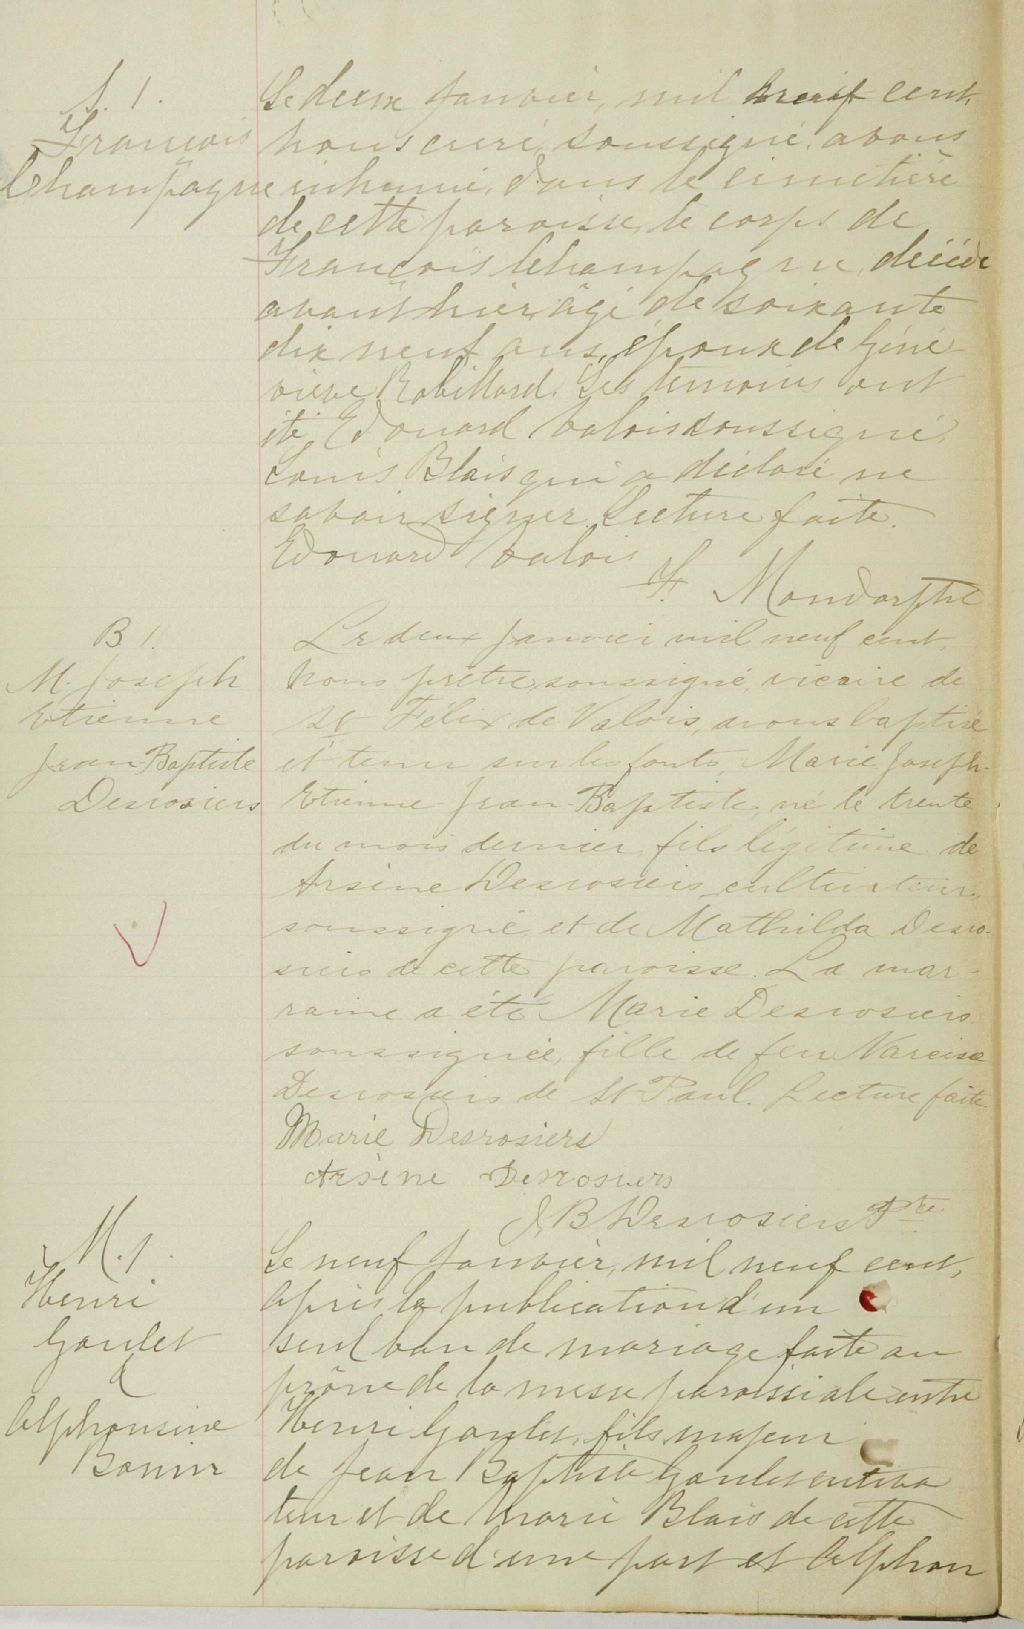 S. 1.
François
Champagne
Le deux janvier, mil neuf cent,
nous curé, soussigné, avons
inhumé, dans le cimetière
de cette paroisse, le corps de
François Champagne, décédé
avant hier, âgé de soixante
dix neuf ans, époux de Géne-
viève Robillard. Les témoins ont
été, Edouard Valois soussigné,
Louis Blais qui a déclaré ne
savoir signer. Lecture faite.
Edouard Valois
F. Mondor Ptre
B 1.
M. Joseph
Etienne
Jean Baptiste
Desrosiers
Le deux janvier mil neuf cent,
nous prêtre, soussigné, vicaire de
St Félix de Valois, avons baptisé
et tenu sur les fonts, Marie Joseph-
Etienne-Jean-Baptiste, né le trente
du mois dernier, fils légitime de
Arsène Desrosiers, cultivateur,
soussigné, et de Mathilda Desro-
siers de cette paroisse. La mar-
raine a été Marie Desrosiers
soussignée, fille de feu Narcisse
Desrosiers de St Paul. Lecture faite.
Marie Desrosiers
Arsène Desrosiers
J B Desrosiers Ptre.
M. 1.
Henri
Goulet
&
Alphonsine
Bonin
Le neuf janvier, mil neuf cent,
après la publication d'un
seul ban de mariage faite au
prône de la messe paroissiale entre
Henri Goulet, fils majeur
de Jean Baptiste Goulet cultiva
teur et de Marie Blais de cette
paroisse d'une part et Alphon